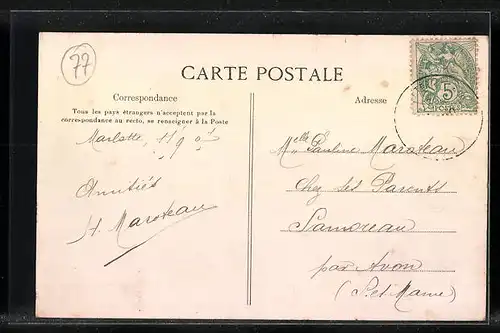 77
CARTE POSTALE
Correspondance
Adresse
Tous les pays étrangers n'acceptent par la
correspondance au recto, se renseigner à la Poste
Marlotte, 11 9
Amitiés
H. Maroteau
Melle Pauline Maroteau
Chez ses Parents
Samoreau
par Avon
(S. et Marne)
5